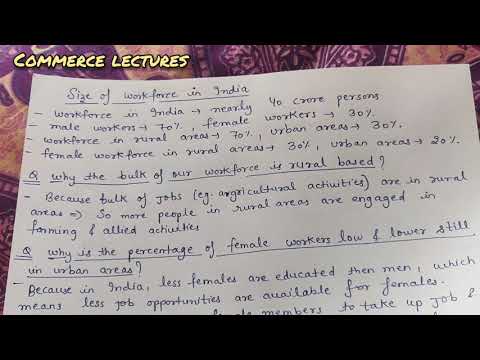 COMMERCE LECTURES
Size of workforce in India
- workforce in India → nearly 40 crore persons
- male workers → 70%, female workers → 30%.
- workforce in rural areas → 70%, urban areas → 30%.
- female workforce in rural areas → 30%, urban areas → 20%.
Q why the bulk of our workforce is rural based?
- Because bulk of jobs (eg. argricultural activities) are in rural
areas ⇒ So more people in rural areas are engaged in
farming & allied activities
Q why is the percentage of female workers low & lower still
in urban areas?
- Because in India, less females are educated then men, which
means less job opportunities are available for females.
members to take up job &